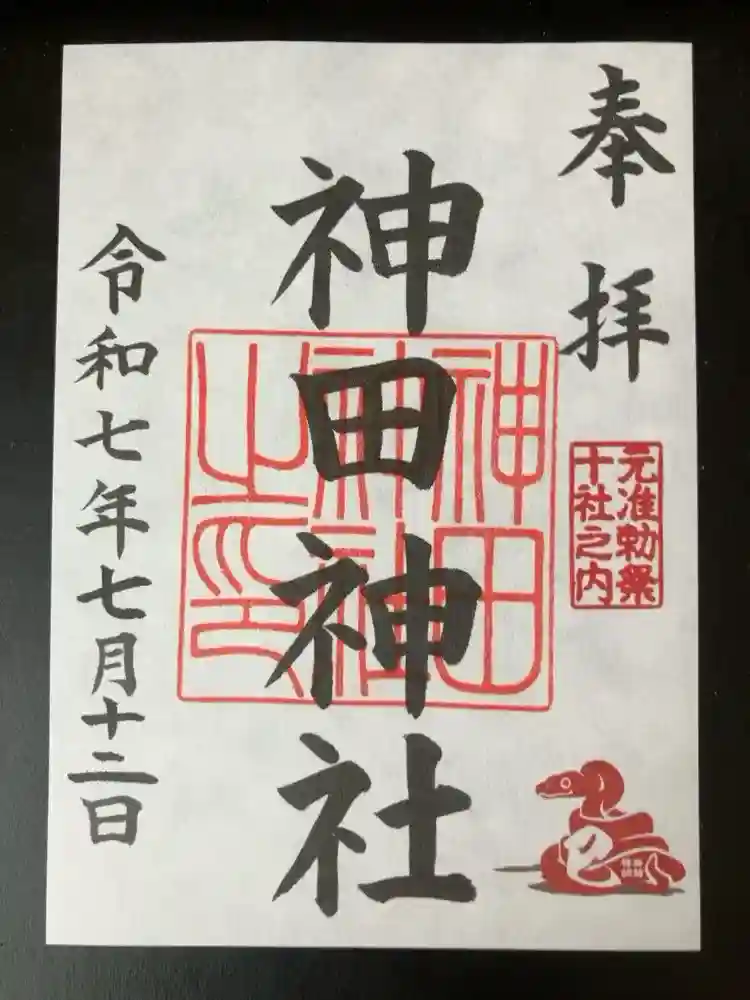 奉拝
元准勅祭
十社之内
神田神社
神田
神社
之印
巳
令和七年七月十二日